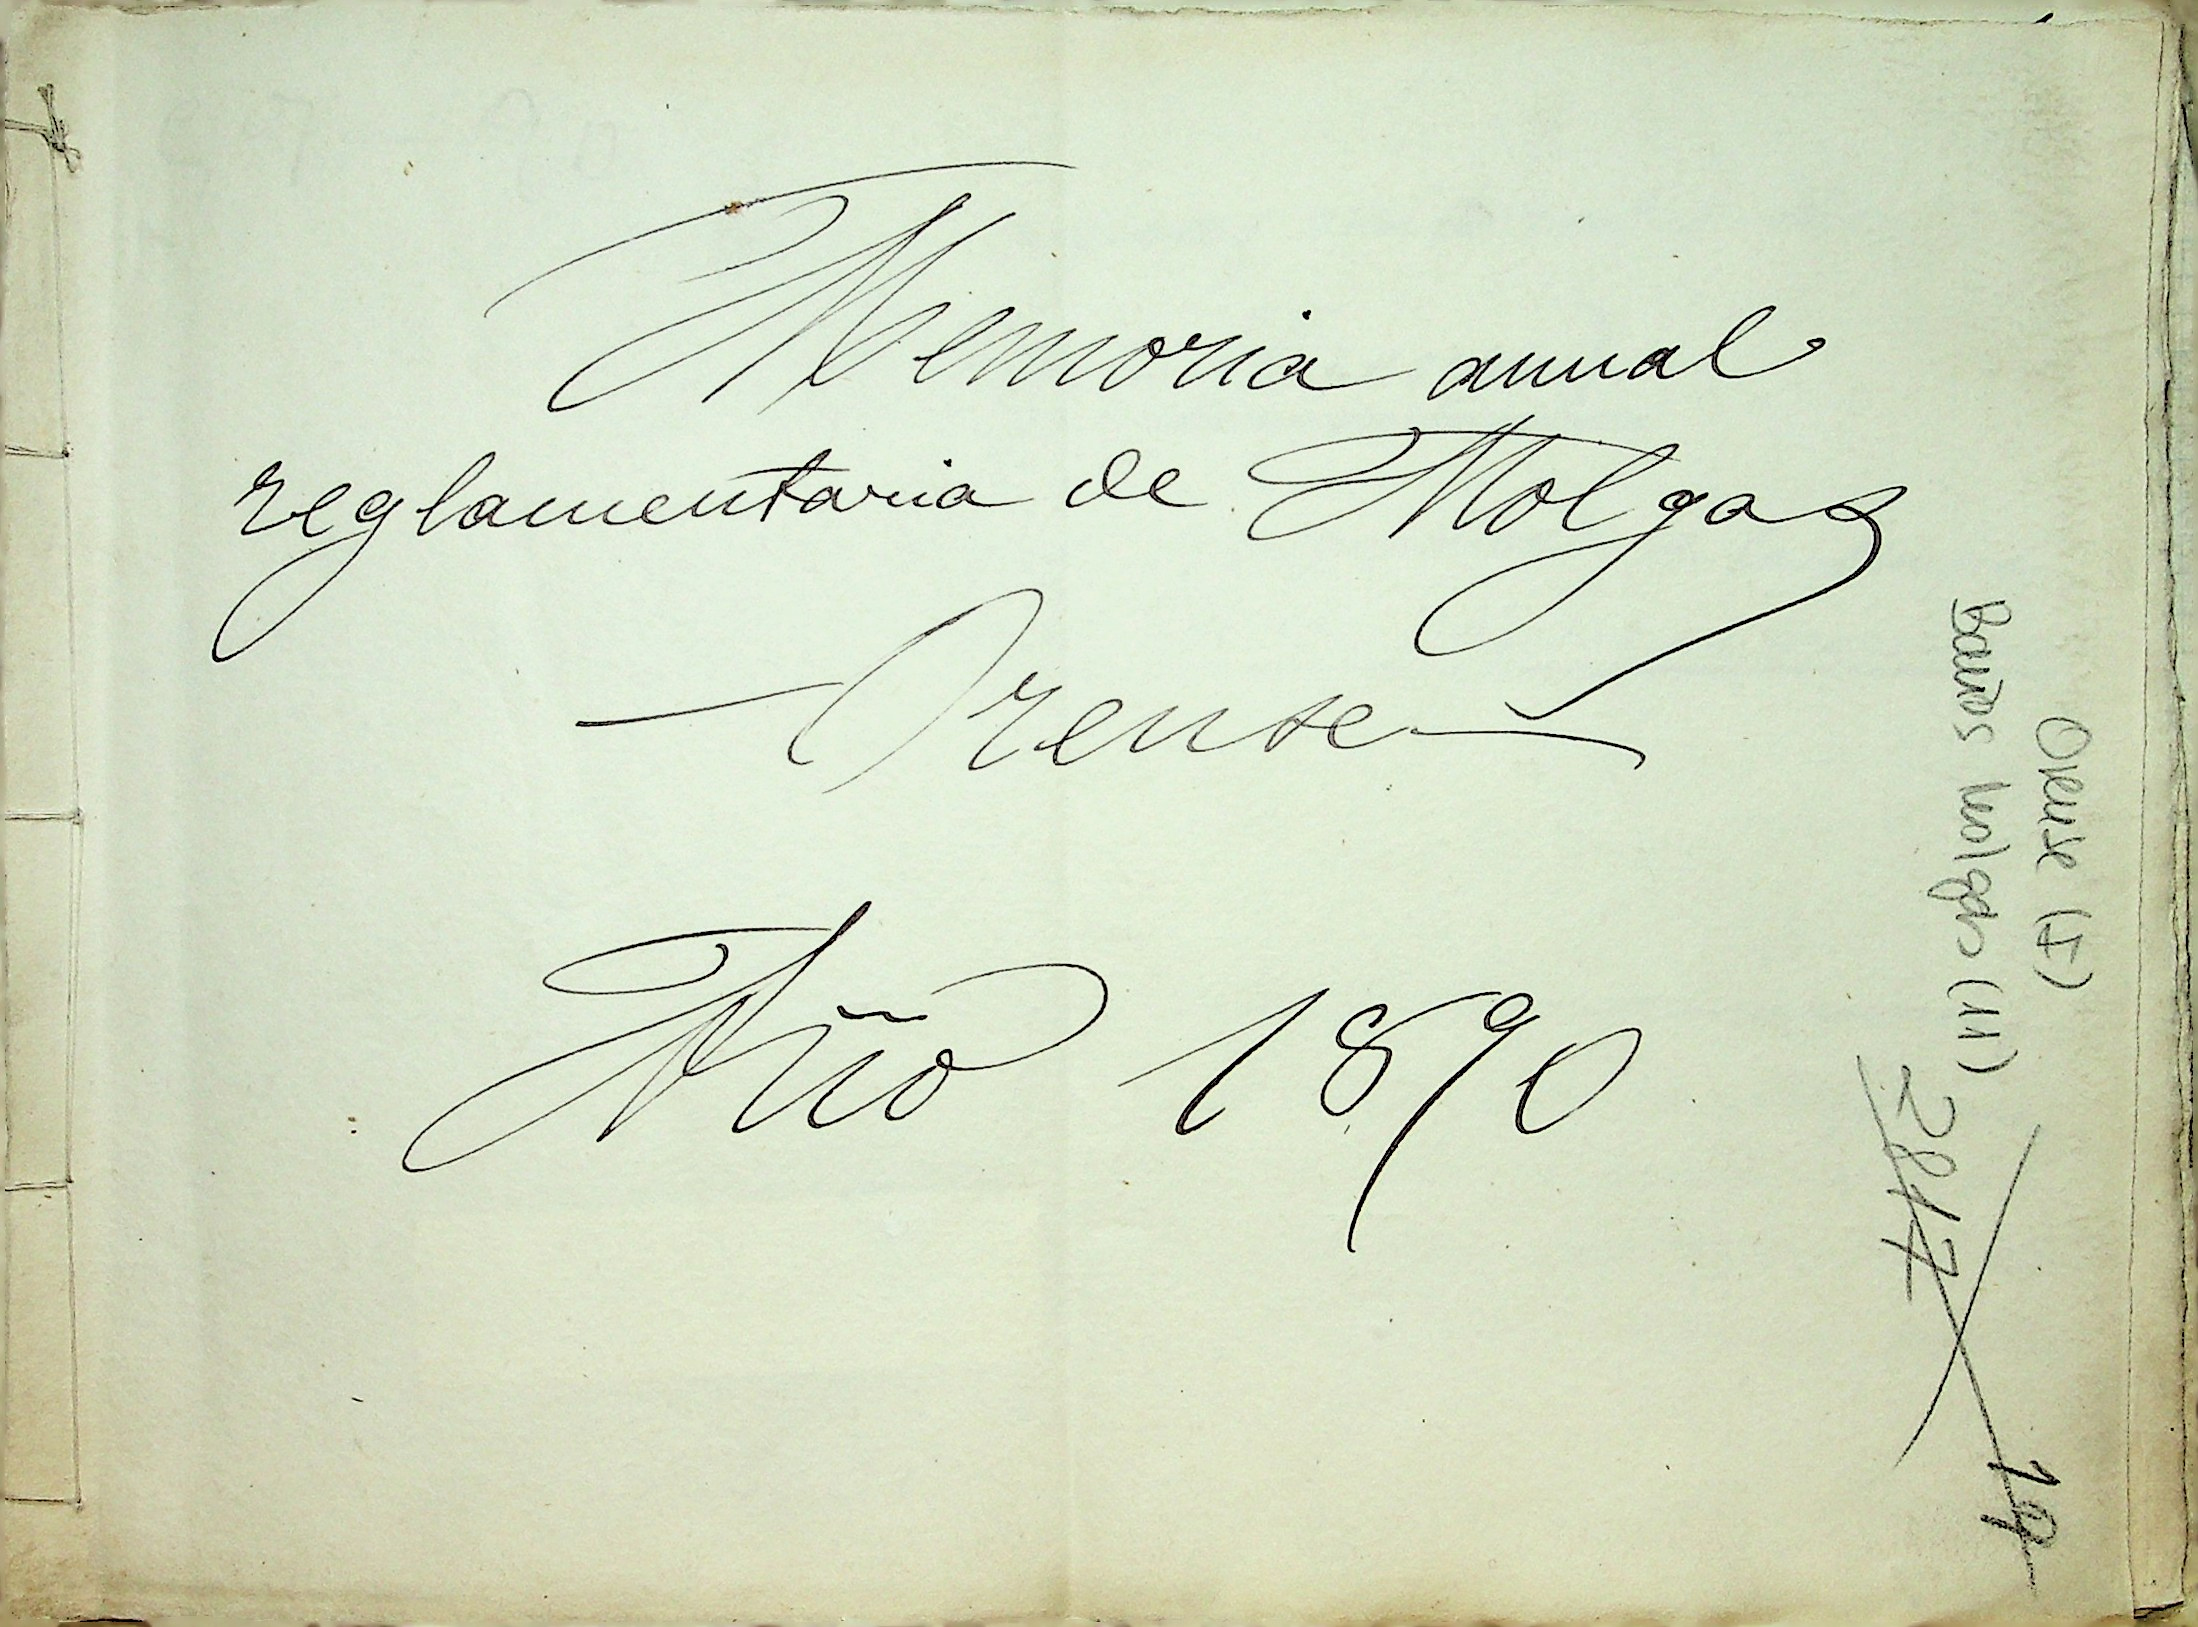 Memoria anual
reglamentaria de Molgas
Orense
Año 1890
Orense (I)
Baños Molgas (11)
2817